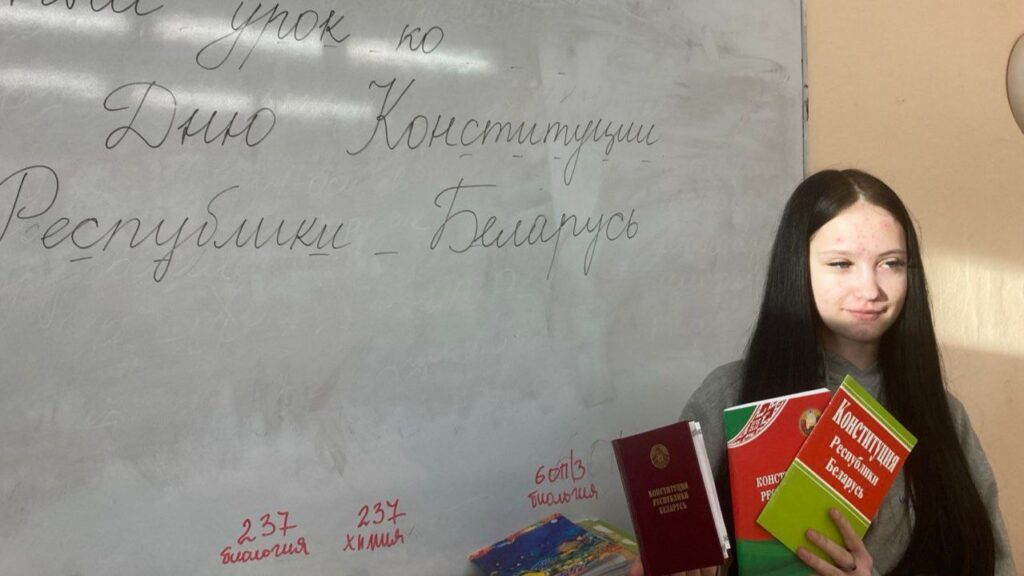 урок ко
Дню Конституции
Республики Беларусь
237
биология
237
химия
60П/3
биология
КОНСТИТУЦИЯ
РЕСПУБЛИКИ
БЕЛАРУСЬ
Конституция
Республики
Беларусь